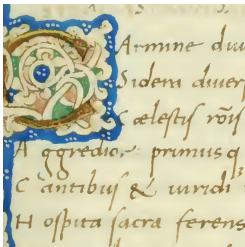 CArmine diu
Sidera diuerſ
Cæleſtis rõis
A ggredior primusq
C antibuſ & uiridi
H oſpita ſacra ferens